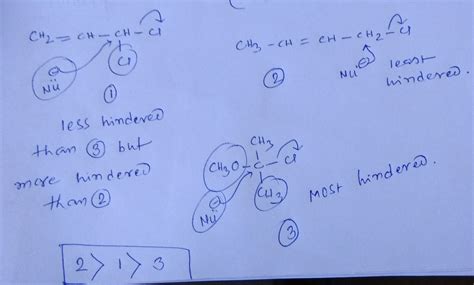 CH2 = CH - CH - Cl
Cl
Nü ⊖
①
less hindered
than ③ but
more hindered
than ②
CH3 - CH = CH - CH2 - Cl
② Nü ⊖ least
hindered.
CH3
CH3O - C - Cl
CH3
Nü ⊖
Most hindered.
③
2 > 1 > 3